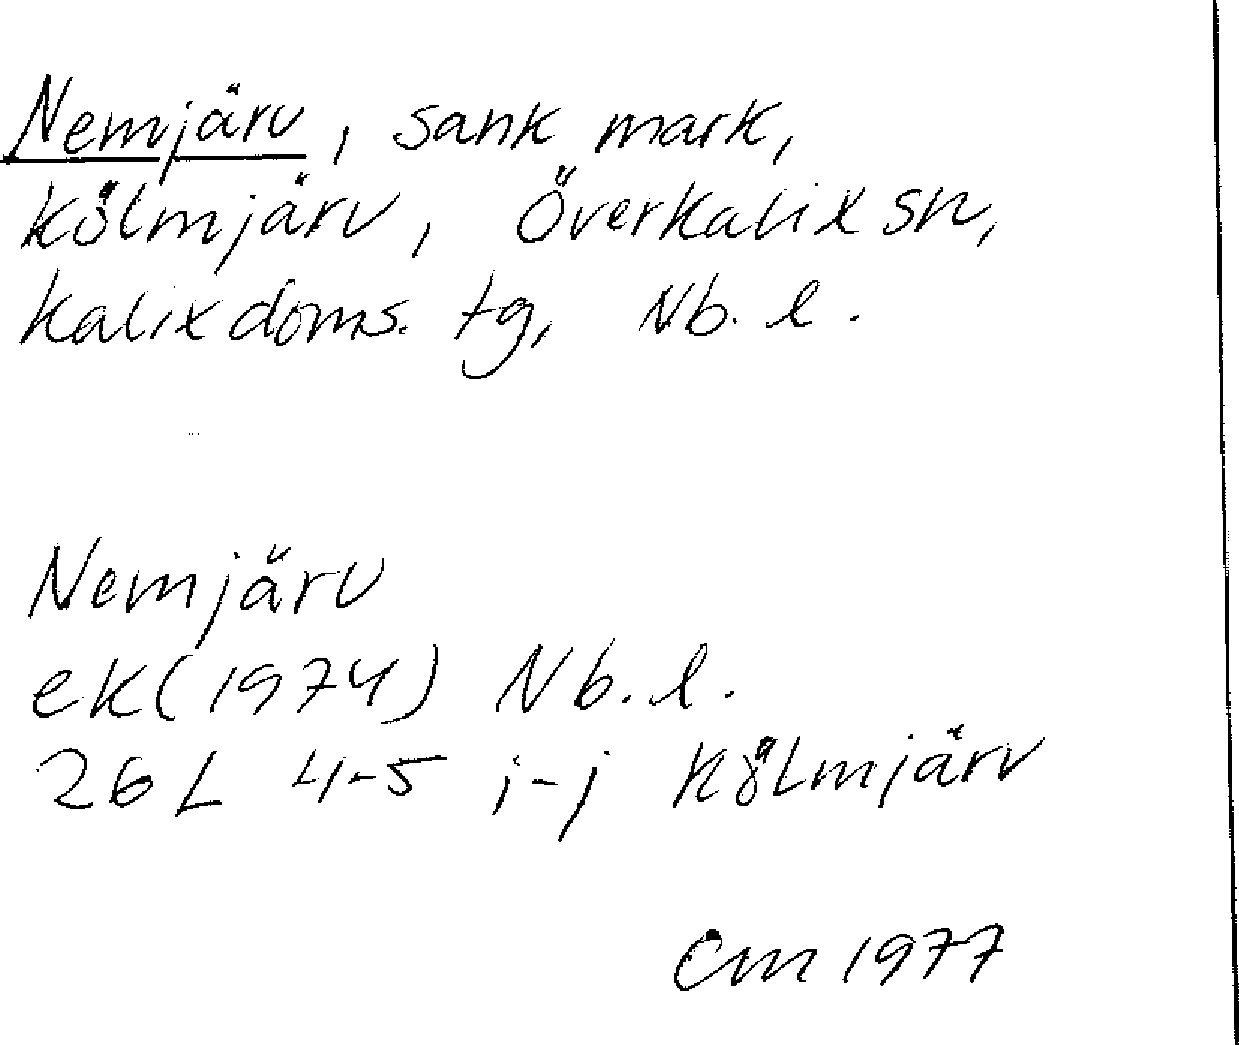 Nemjärv, sank mark,
Kölmjärv, Överkalix sn,
Kalix doms. tg, Nb. l.
Nemjärv
ek (1974) Nb. l.
26 L 4-5 i-j Kölmjärv
Cm 1977